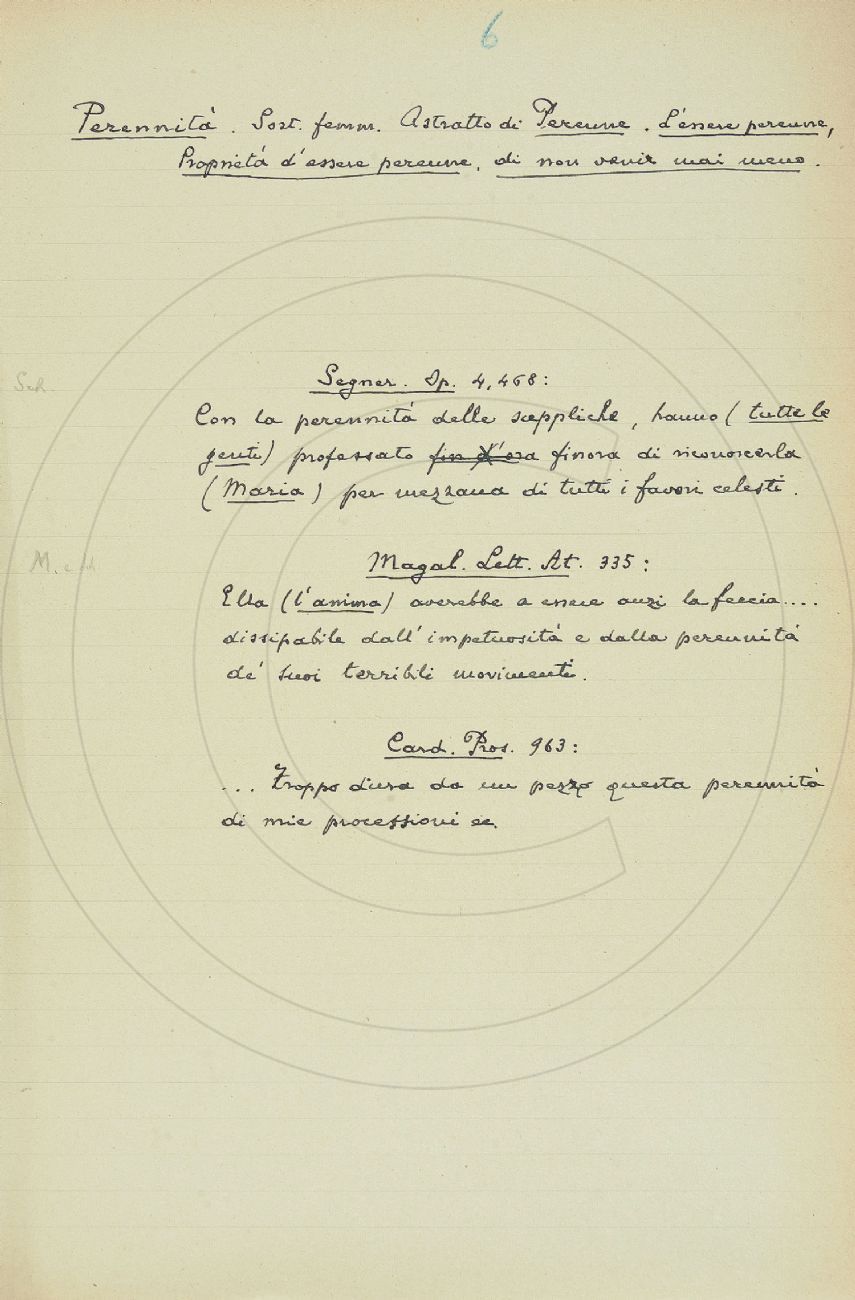 6
Perennità. Sost. femm. Astratto di Perenne. L'essere perenne,
Proprietà d'essere perenne, di non venir mai meno.
Segner. Op. 4, 468:
Con la perennità delle suppliche, hanno (tutte le
genti) professato fin d'ora finora di riconoscerla
(Maria) per mezzana di tutti i favori celesti.
Magal. Lett. At. 335:
Ella (l'anima) averebbe a essere anzi la feccia....
dissipabile dall'impetuosità e dalla perennità
de' suoi terribili movimenti.
Card. Pros. 963:
... Troppo dura da un pezzo questa perennità
di mie processioni ec.